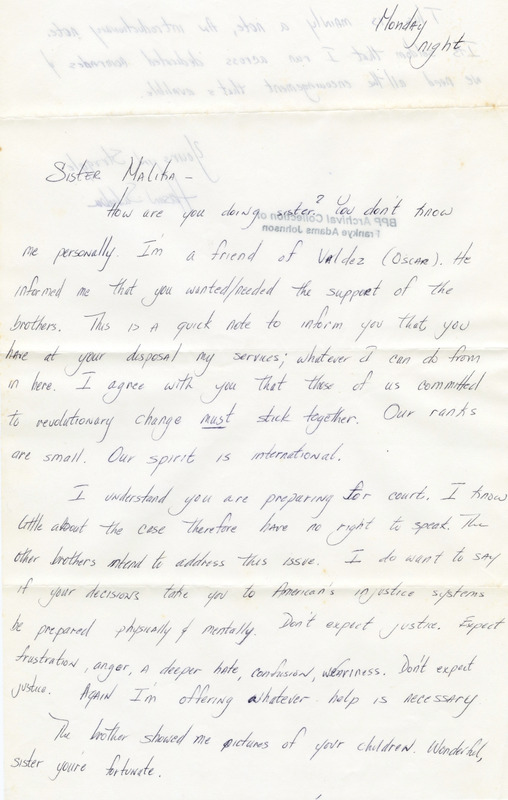 Monday
night
Sister Malika –
How are you doing sister? You don't know
me personally. I'm a friend of Valdez (Oscar). He
informed me that you wanted/needed the support of the
brothers. This is a quick note to inform you that you
have at your disposal my services; whatever I can do from
in here. I agree with you that those of us committed
to revolutionary change must stick together. Our ranks
are small. Our spirit is international.
I understand you are preparing for court. I know
little about the case therefore have no right to speak. The
other brothers intend to address this issue. I do want to say
if your decisions take you to American's injustice systems
be prepared physically & mentally. Don't expect justice. Expect
frustration, anger, a deeper hate, confusion, weariness. Don't expect
justice. Again I'm offering whatever help is necessary
The brother showed me pictures of your children. Wonderful,
sister you're fortunate.
BPP Archival Collection of
Frankye Adams Johnson